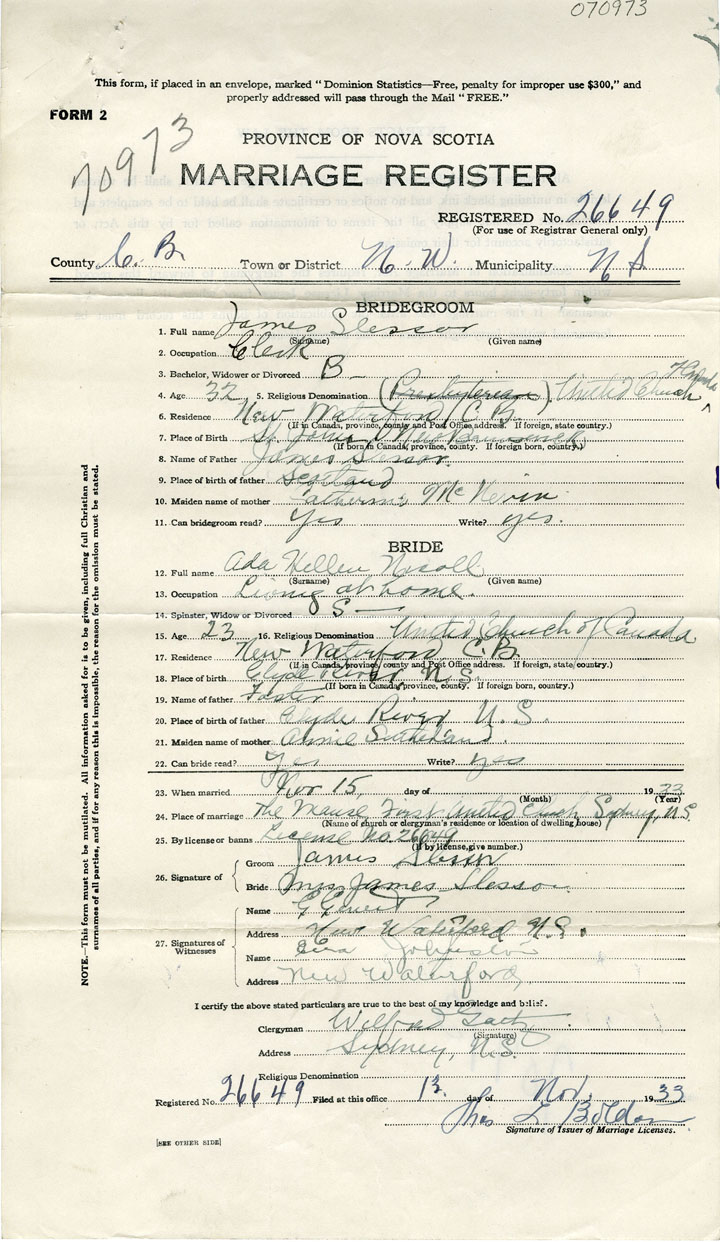 070973
This form, if placed in an envelope, marked "Dominion Statistics—Free, penalty for improper use $300," and
properly addressed will pass through the Mail "FREE."
FORM 2
70973
PROVINCE OF NOVA SCOTIA
MARRIAGE REGISTER
REGISTERED No. 26649
(For use of Registrar General only)
County C. B. Town or District N. W. Municipality N S
BRIDEGROOM
1. Full name James Slessor
(Surname) (Given name)
2. Occupation Clerk
3. Bachelor, Widower or Divorced B
4. Age 32 5. Religious Denomination (Presbyterian) United Church of Canada
6. Residence New Waterford C.B.
(If in Canada, province, county and Post Office address. If foreign, state country.)
7. Place of Birth St. John, New Brunswick
(If born in Canada, province, county. If foreign born, country.)
8. Name of Father James Slessor
9. Place of birth of father Scotland
10. Maiden name of mother Catherine Mc
11. Can bridegroom read? Yes Write? yes.
BRIDE
12. Full name Ada Hellen
(Surname) (Given name)
13. Occupation Living at home.
14. Spinster, Widow or Divorced S
15. Age 23 16. Religious Denomination United Church of Canada
17. Residence New Waterford C.B.
(If in Canada, province, county and Post Office address. If foreign, state country.)
18. Place of birth Clyde River N.S.
(If born in Canada, province, county. If foreign born, country.)
19. Name of father Foster
20. Place of birth of father Clyde River N.S.
21. Maiden name of mother Annie Sutherland.
22. Can bride read? Yes Write? yes
23. When married Nov 15 day of 1933
(Month) (Year)
24. Place of marriage The Manse, First United Church, Sydney, N.S.
(Name of church or clergyman's residence or location of dwelling house)
25. By license or banns License no. 26649
(If by license, give number.)
26. Signature of
Groom James Slessor
Bride Mrs James Slessor.
27. Signatures of Witnesses
Name G
Address New Waterford N.S.
Name Johnston
Address New Waterford
I certify the above stated particulars are true to the best of my knowledge and belief.
Clergyman Wilfred
(Signature)
Address Sydney, N.S.
Religious Denomination
Registered No. 26649 Filed at this office 13 day of Nov. 1933
Signature of Issuer of Marriage Licenses.
[SEE OTHER SIDE]
NOTE.—This form must not be mutilated. All information asked for is to be given, including full Christian and
surnames of all parties, and if for any reason this is impossible, the reason for the omission must be stated.